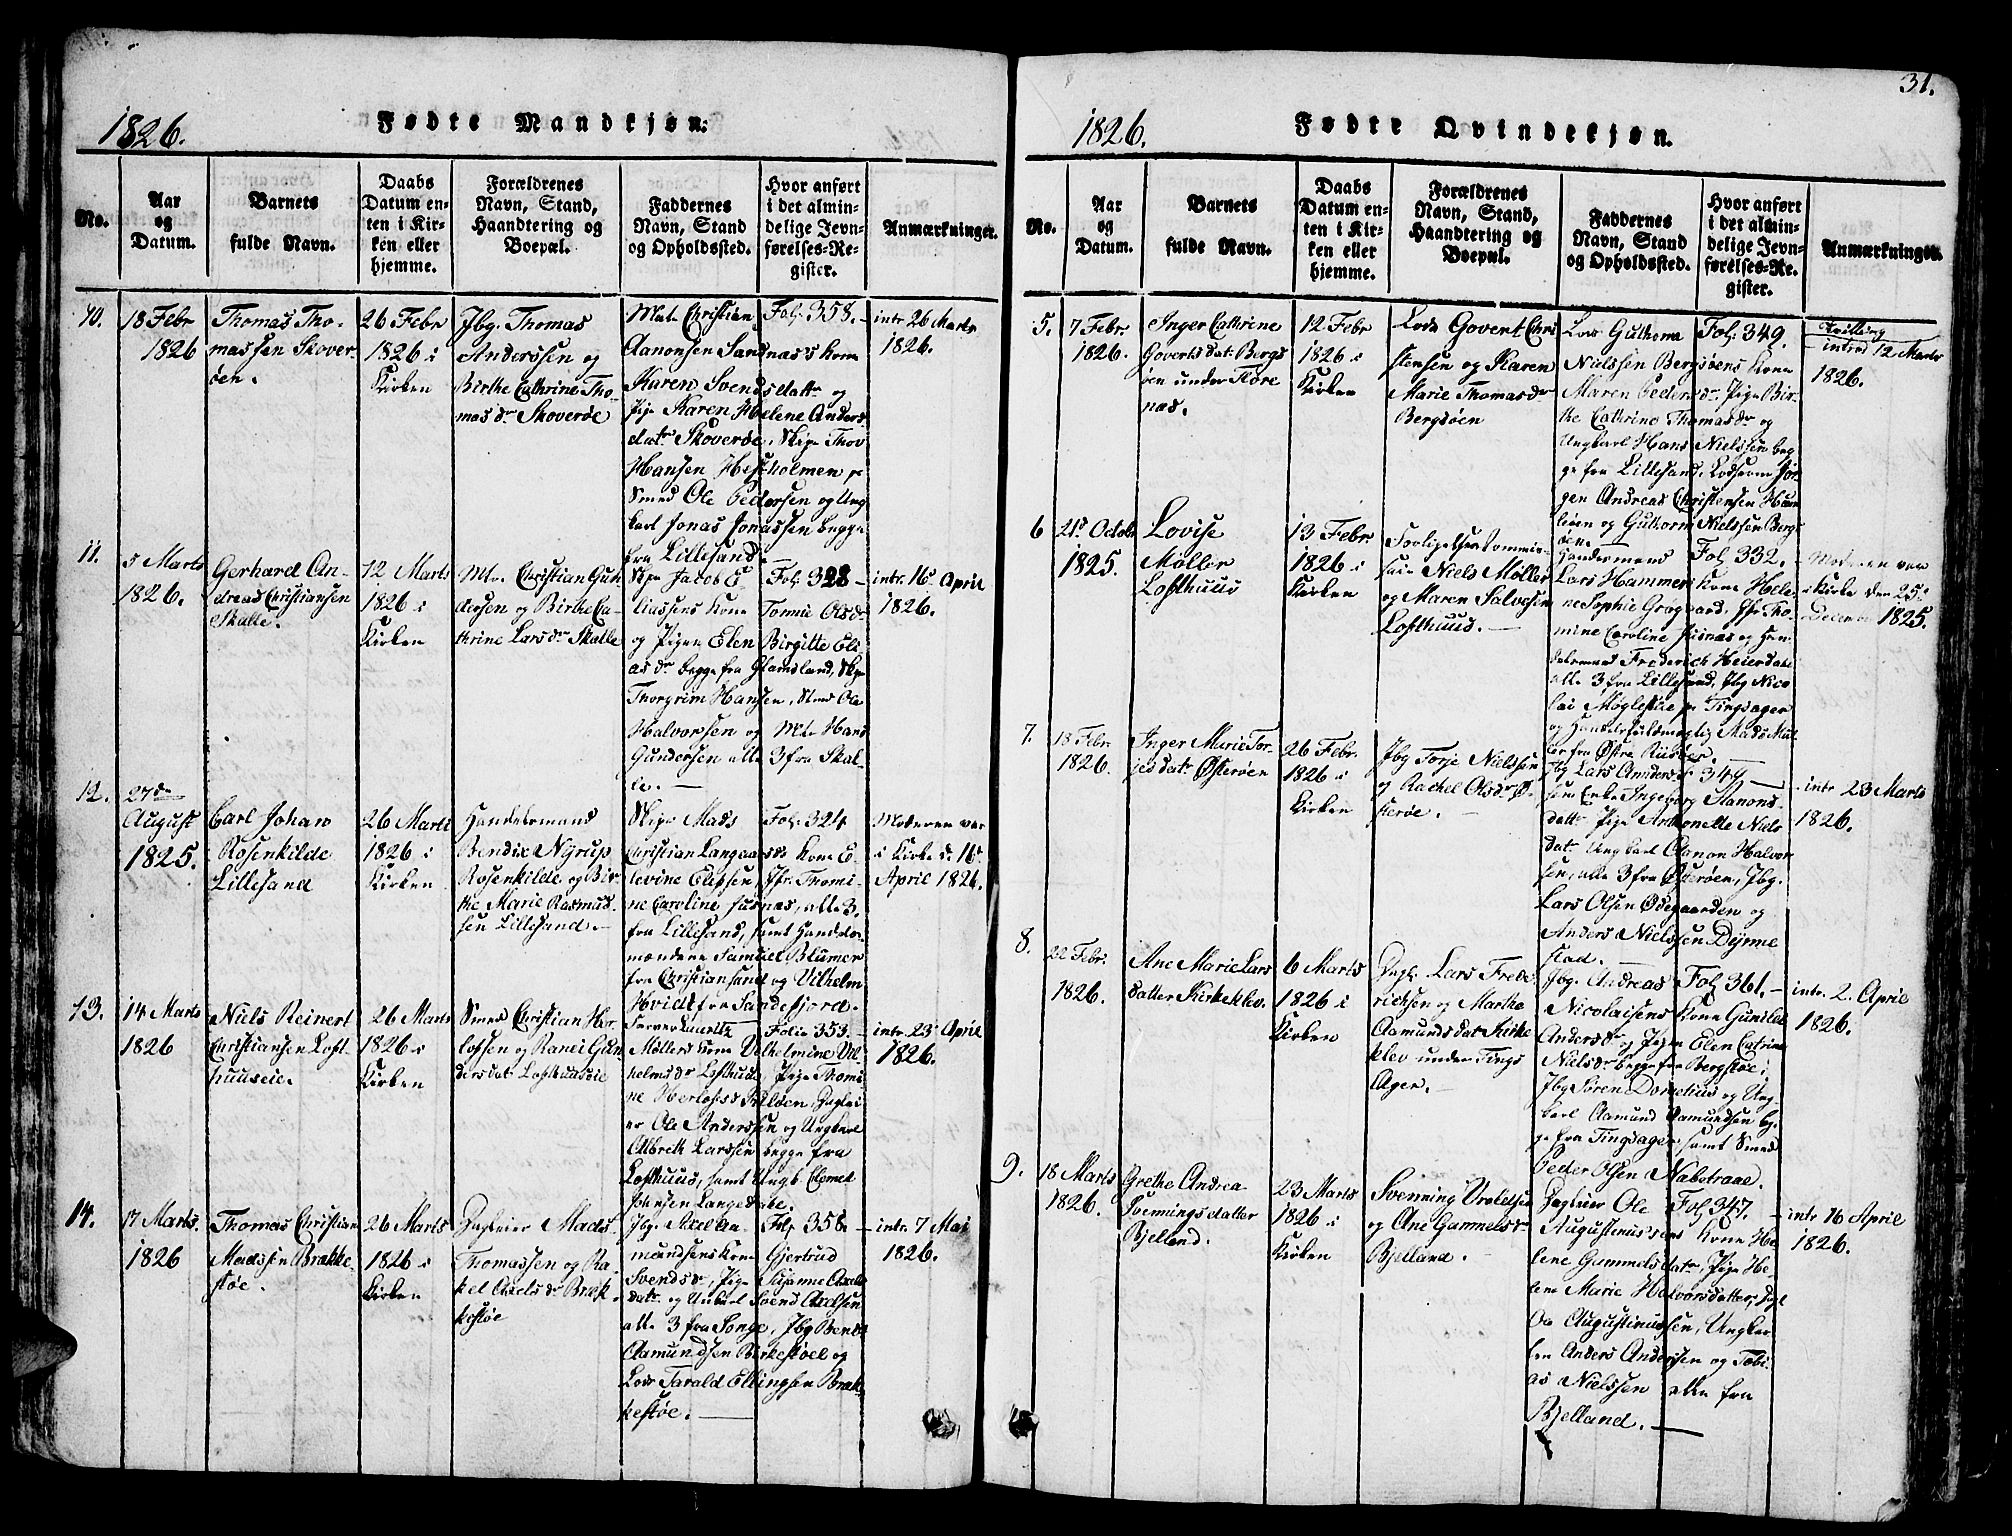 31.
1826. Fødte Mandkjøn.
No.
Aar
og
Datum.
Barnets
fulde Navn.
Daabs
Datum en-
ten i Kir-
ken eller
hjemme.
Forældrenes
Navn, Stand,
Haandtering og
Boepæl.
Faddernes
Navn, Stand
og Opholdssted.
Hvor anført
i det almin-
delige Jevn-
førelses-Re-
gister.
Anmærkninger.
10.
18 Febr
1826
Thomas Tho-
massen Skover-
øen.
26 Febr
1826 i
Kirken
Jbg. Thomas
Anderssen og
Birthe Cathrine Tho-
mas dr Skoverøe
Mat. Christian
Aanonsen Sandnæss kone
Karen Svendsdattr og
Pige Karen Helene Anders
datr Skoverøe, Skipr Thor
Hansen Hestholmen
Smed Ole Pedersen og Ung
karl Jonas Jonassen begge
fra Lillesand.
Fol. 358.
intr. 26 Marts
1826.
11.
5 Marts
1826.
Gerhard An-
dreas Christiansen
Skalle.
12 Marts
1826 i
Kirken
Mtr. Christian Gun-
dersen og Birthe Ca-
thrine Lars dr Skalle
Skipr Jacob E-
liassens Kone Tomine Olsdr
og Pigen Elen Birgitte Eli-
as dr begge fra Glamsland, Skpr
Thorgrim Hansen, Smed Ole
Halvorsen og Mtr Hans
Gundersen alle 3 fra Skal-
le.
Fol. 328
intr. 16 April
1826.
12.
27de
August
1825.
Carl Johan
Rosenkilde
Lillesand
26 Marts
1826 i
Kirken
Handelsmand
Bendix Nyrup
Rosenkilde og Bir-
the Marie Rasmus-
sen Lillesand.
Skipr Mads
Christian Langaards Kone E-
levine Ellefsen, Jfr. Thomi-
ne Caroline Fusnæs, alle 3
fra Lillesand, samt Handels-
mændene Samuel Blümer
fra Christiansund og Vilhelm
Hvidt fra Sandefjord.
Fol. 324
Moderen var
i Kirke d. 16
April 1826.
13.
14 Marts
1826
Niels Reinert
Christiansen Loft-
huuseie.
26 Marts
1826 i
Kirken
Smed Christian Her-
lofsen og Ranei Gun
dersdat. Lofthuuseie
Lauritz
Møllers kone Vilhelmine Vil-
helmsdr Lofthuus, Pige Thomi
ne Herlofsd
er Ole Anderssen og Ungkarl
Albreth Larssen begge fra
Lofthuus, samt Ungk. Clemet
Johnsen Langedahe.
Folio 353.
intr. 23 April
1826.
14.
17 Marts.
1826
Thomas Christian
Madssen Brække-
støe.
26 Marts
1826 i
Kirken
Dagleier Mads
Thomassen og Ra-
kel Axels dr Bræk-
kestøe
Jbg. Axel Aa-
mundsens Kone Gjertrud
Svendsdr, Pige Susanne Axels
datr og Unkarl Svend Axelsen
alle 3 fra Songe, Jbg Bent
Aamundsen Birkestøel og
Lods Tarald Ellingsen Bræk-
kestøe.
Fol. 358
intr. 7 Mai
1826.
1826. Fødte Qvindekjøn.
No.
Aar
og
Datum.
Barnets
fulde Navn.
Daabs
Datum en-
ten i Kir-
ken eller
hjemme.
Forældrenes
Navn, Stand,
Haandtering og
Boepæl.
Faddernes
Navn, Stand
og Opholdssted.
Hvor anført
i det almin-
delige Jevn-
førelses-Re-
gister.
Anmærkninger.
5.
7 Febr
1826.
Inger Cathrine
Govertsdat. Bergs
øen under Tøre
næs.
12 Febr
1826 i
Kirken
Lods Govert Chri
stensen og Karen
Marie Thomasdr
Bergsøen
Lods Guthorm
Nielssen Bergsøens Kone
Maren Peders dr. Pige Bir-
the Cathrine Thomasdr og
Ungkarl Hans Nielssen beg-
ge fra Lillesand, Lodserne Jør-
gen Andreas Christensen
øen og Guthorm Nielssen Bergs
øen.
Fol. 349.
intrd 12 Marts
1826.
6
21d Octob
1825.
Lovise
Møller
Lofthuus
13 Febr
1826 i
Kirken
Niels Møller
og Maren Salvesen
Lofthuus.
Handelsmand
Lars Hammers Kone Hele-
ne Sophie Grogaard, Jfr Tho-
mine Caroline Fusnæs og Han-
delsmand Frederich Heierdahl
alle 3 fra Lillesand, Jbg Nico
lai Møglestue pr Tingsager
og Handelsfuldmægtig Mads Møl
ler fra Østre Riisøer.
Fol 332.
Moderen var
i Kirke den 25.
Decembr 1825.
7.
18 Febr.
1826.
Inger Marie Tor-
jes datr Østerøen
26 Febr.
1826 i
Kirken
Jbg Torje Nielssen
og Rachel Olsdr Ø-
sterøe.
Jbg Lars Anders-
sen Enke Ingeborg Aanons-
datr. Pige Antonelle Niels
datr Ungkarl Aanon Halvor
sen, alle 3 fra Østerøen, Jbg.
Lars Olsen Ødegaarden og
Anders Nielssen Dyrme
stad.
349
intr 23 Marts
1826.
8.
22 Febr.
1826.
Ane Marie Lars
datter Kirkeklev.
6 Marts
1826 i
Kirken
Dagl. Lars Frede
richsen og Martha
Aamundsdat. Kirke
klev under Tings
Ager.
Jbg. Andreas
Nicolaisens Kone Gunild
Andersdr og Pigen Elen Catrine
Nielsdr begge fra Bergstøe,
Jbg Søren Dornelius og Ung-
karl Aamund Aamundsen beg-
ge fra Tingsager samt Smed
Peder Olsen Nabstraae.
Fol 361.
intr. 2. April
1826.
9.
18 Marts
1826.
Grethe Andrea
Svenningsdatter
Bjelland.
23 Marts
1826 i
Kirken
Svenning Vroldsen
og Ane Gammelsdr
Bjelland.
Dagleier Ole
Augustinussens Kone He-
lene Gammelsdatr, Pige He-
lene Marie Halvorsdatter, Dagl
Ole Augustinussen, Ungkar-
len Anders Anderssen og Tobi-
as Nielssen alle fra
Bjelland.
Fol 347.
intr 16 April
1826.